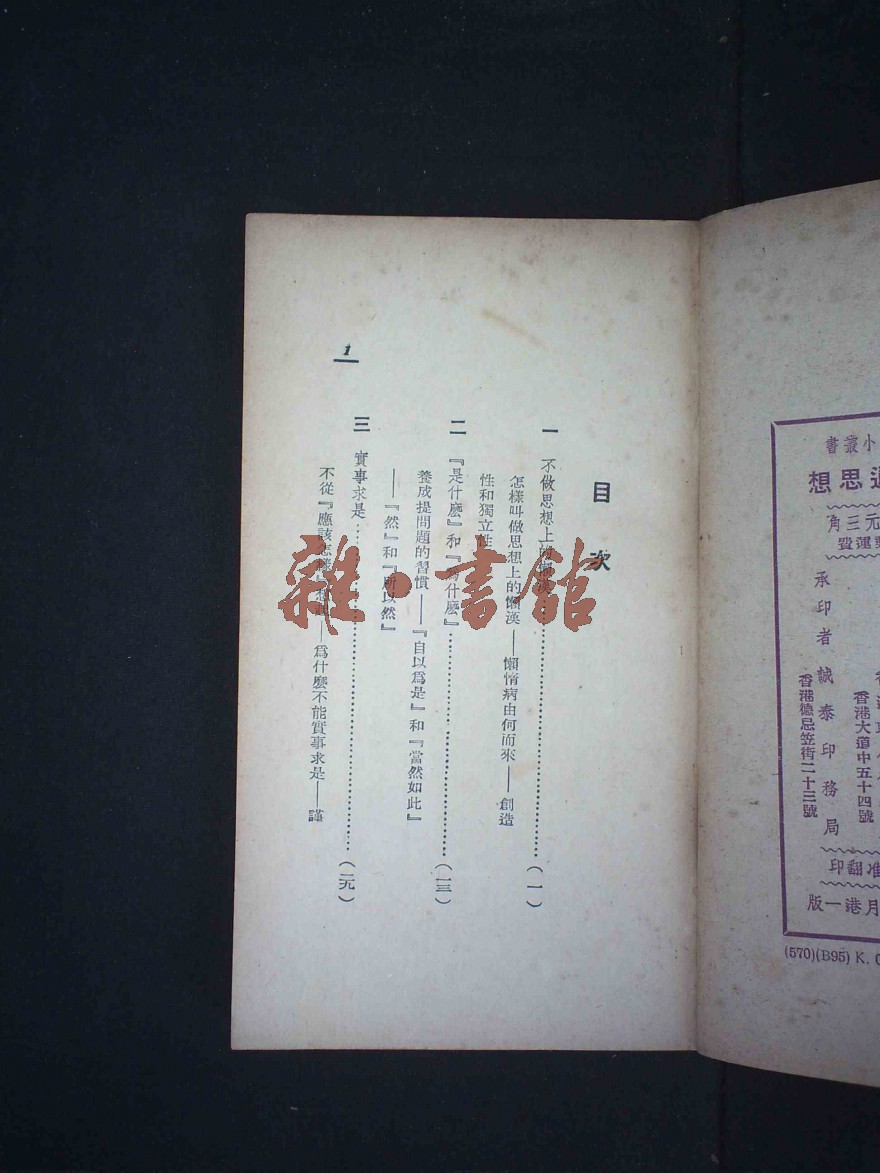 目次
一 不做思想上的懶漢……(一)
怎樣叫做思想上的懶漢——懶惰病由何而來——創造
性和獨立性
二 『是什麼』和『爲什麼』……(一三)
養成提問題的習慣——『自以爲是』和『當然如此』
——『然』和『所以然』
三 實事求是……(二九)
不從『應該怎樣』——爲什麼不能實事求是——謹
1
雜·書館
小叢書
思想
元三角
運費
承印者 誠泰印務局
香港德忌笠街二十三號
香港大道中五十四號
准翻印
月港一版
(570)(B95) K.